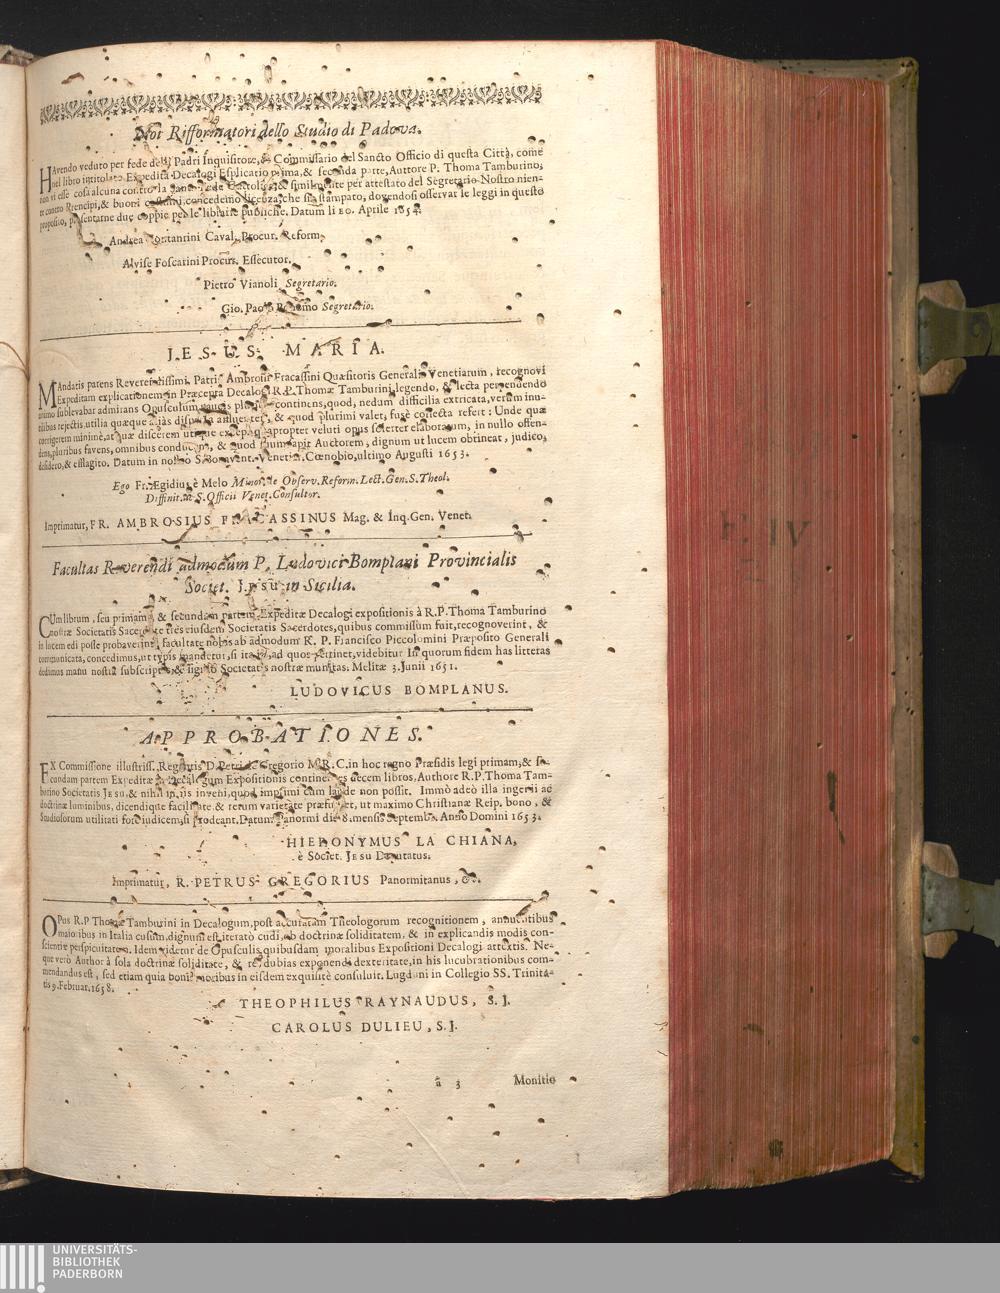 Noi Rifformatori dello Studio di Padova.
HAvendo veduto per fede delli Padri Inquisitore, & Commissario del Sancto Officio di questa Città, come
nel libro intitolato Expedita Decalogi Esplicatio prima, & seconda parte, Auttore P. Thoma Tamburino,
non vi esse cosa alcuna contro la Santa Fede Cattolica, & similmente per attestato del Segretario Nostro nien-
te contro Prencipi, & buoni costumi, concedemo licenza, che sia stampato, dovendosi osservar le leggi in questo
proposito, presentarne due coppie per le librarie publiche. Datum li 20. Aprile 1654.
Andrea Contarini Caval. Procur. Reform.
Alvise Foscarini Procur. Essecutor.
Pietro Vianoli Segretario.
Gio. Paolo Segretario.
JESUS MARIA.
MAndatis parens Reverendissimi Patris Ambrosii Fracassini Quæsitoris Generalis Venetiarum, recognovi
Expeditam explicationem in Præcepta Decalogi R.P. Thomæ Tamburini, legendo, & lecta perpendendo
animo sublevabar admirans Opusculum paucis plura continens, quod, nedum difficilia extricata, verùm inu-
tilibus rejectis, utilia quæque aliàs & quod plurimi valet, fusè collecta refert: Unde quæ
corrigerem minimè, at quæ discerem utique excepi, quapropter veluti opus solerter elaboratum, in nullo offen-
dens, pluribus favens, omnibus conducens, & quod suum sapit Auctorem, dignum ut lucem obtineat, judico,
desidero, & efflagito. Datum in nostro S. Bonavent. Venetiar. Cœnobio, ultimo Augusti 1653.
Ego Fr. Ægidius è Melo Minor. de Observ. Reform. Lect. Gen. S. Theol.
Diffinit. ac S. Officii Venet. Consultor.
Imprimatur, FR. AMBROSIUS FRACASSINUS Mag. & Inq. Gen. Venet.
Facultas Reverendi admodum P. Ludovici Bomplani Provincialis
Societ. Jesu in Sicilia.
CUm librum, seu primam, & secundam partem Expeditæ Decalogi expositionis à R.P. Thoma Tamburino
nostræ Societatis Sacerdote tres ejusdem Societatis Sacerdotes, quibus commissum fuit, recognoverint, &
in lucem edi posse probaverint, facultate nobis ab admodum R. P. Francisco Piccolomini Præposito Generali
communicata, concedimus, ut typis mandetur, si ita iis, ad quos pertinet, videbitur In quorum fidem has litteras
dedimus manu nostra subscriptas, & sigillo Societatis nostræ munitas. Melitæ 3. Junii 1651.
LUDOVICUS BOMPLANUS.
APPROBATIONES.
EX Commissione illustriss. Regentis D. Petri de Gregorio M. R. C. in hoc regno Præsidis legi primam, & se-
cundam partem Expeditæ in Decalogum Expositionis continentes decem libros, Authore R.P. Thoma Tam-
burino Societatis Jesu, & nihil in iis inveni, quod imprimi cum laude non possit. Immò adeò illa ingenii ac
doctrinæ luminibus, dicendique facilitate & rerum varietate præfulget, ut maximo Christianæ Reip. bono, &
Studiosorum utilitati fore judicem, si prodeant. Datum Panormi die 8. mensis Septemb. Anno Domini 1653.
HIERONYMUS LA CHIANA,
è Societ. Jesu Deputatus.
Imprimatur, R. PETRUS GREGORIUS Panormitanus, &c.
OPus R.P Thomæ Tamburini in Decalogum, post accuratam Theologorum recognitionem, annuentibus
maioribus in Italia cusum, dignum est iteratò cudi, ob doctrinæ soliditatem, & in explicandis modis con-
scientiæ perspicuitatem. Idem videtur de Opusculis quibusdam moralibus Expositioni Decalogi attextis. Ne-
que verò Author à sola doctrinæ soliditate, & res dubias exponendi dexteritate, in his lucubrationibus com-
mendandus est, sed etiam quia bonis moribus in eisdem exquisitè consuluit. Lugduni in Collegio SS. Trinita-
tis 9. Februar. 1658.
THEOPHILUS RAYNAUDUS, S.J.
CAROLUS DULIEU, S.J.
ã 3 Monitio
UNIVERSITÄTS-
BIBLIOTHEK
PADERBORN